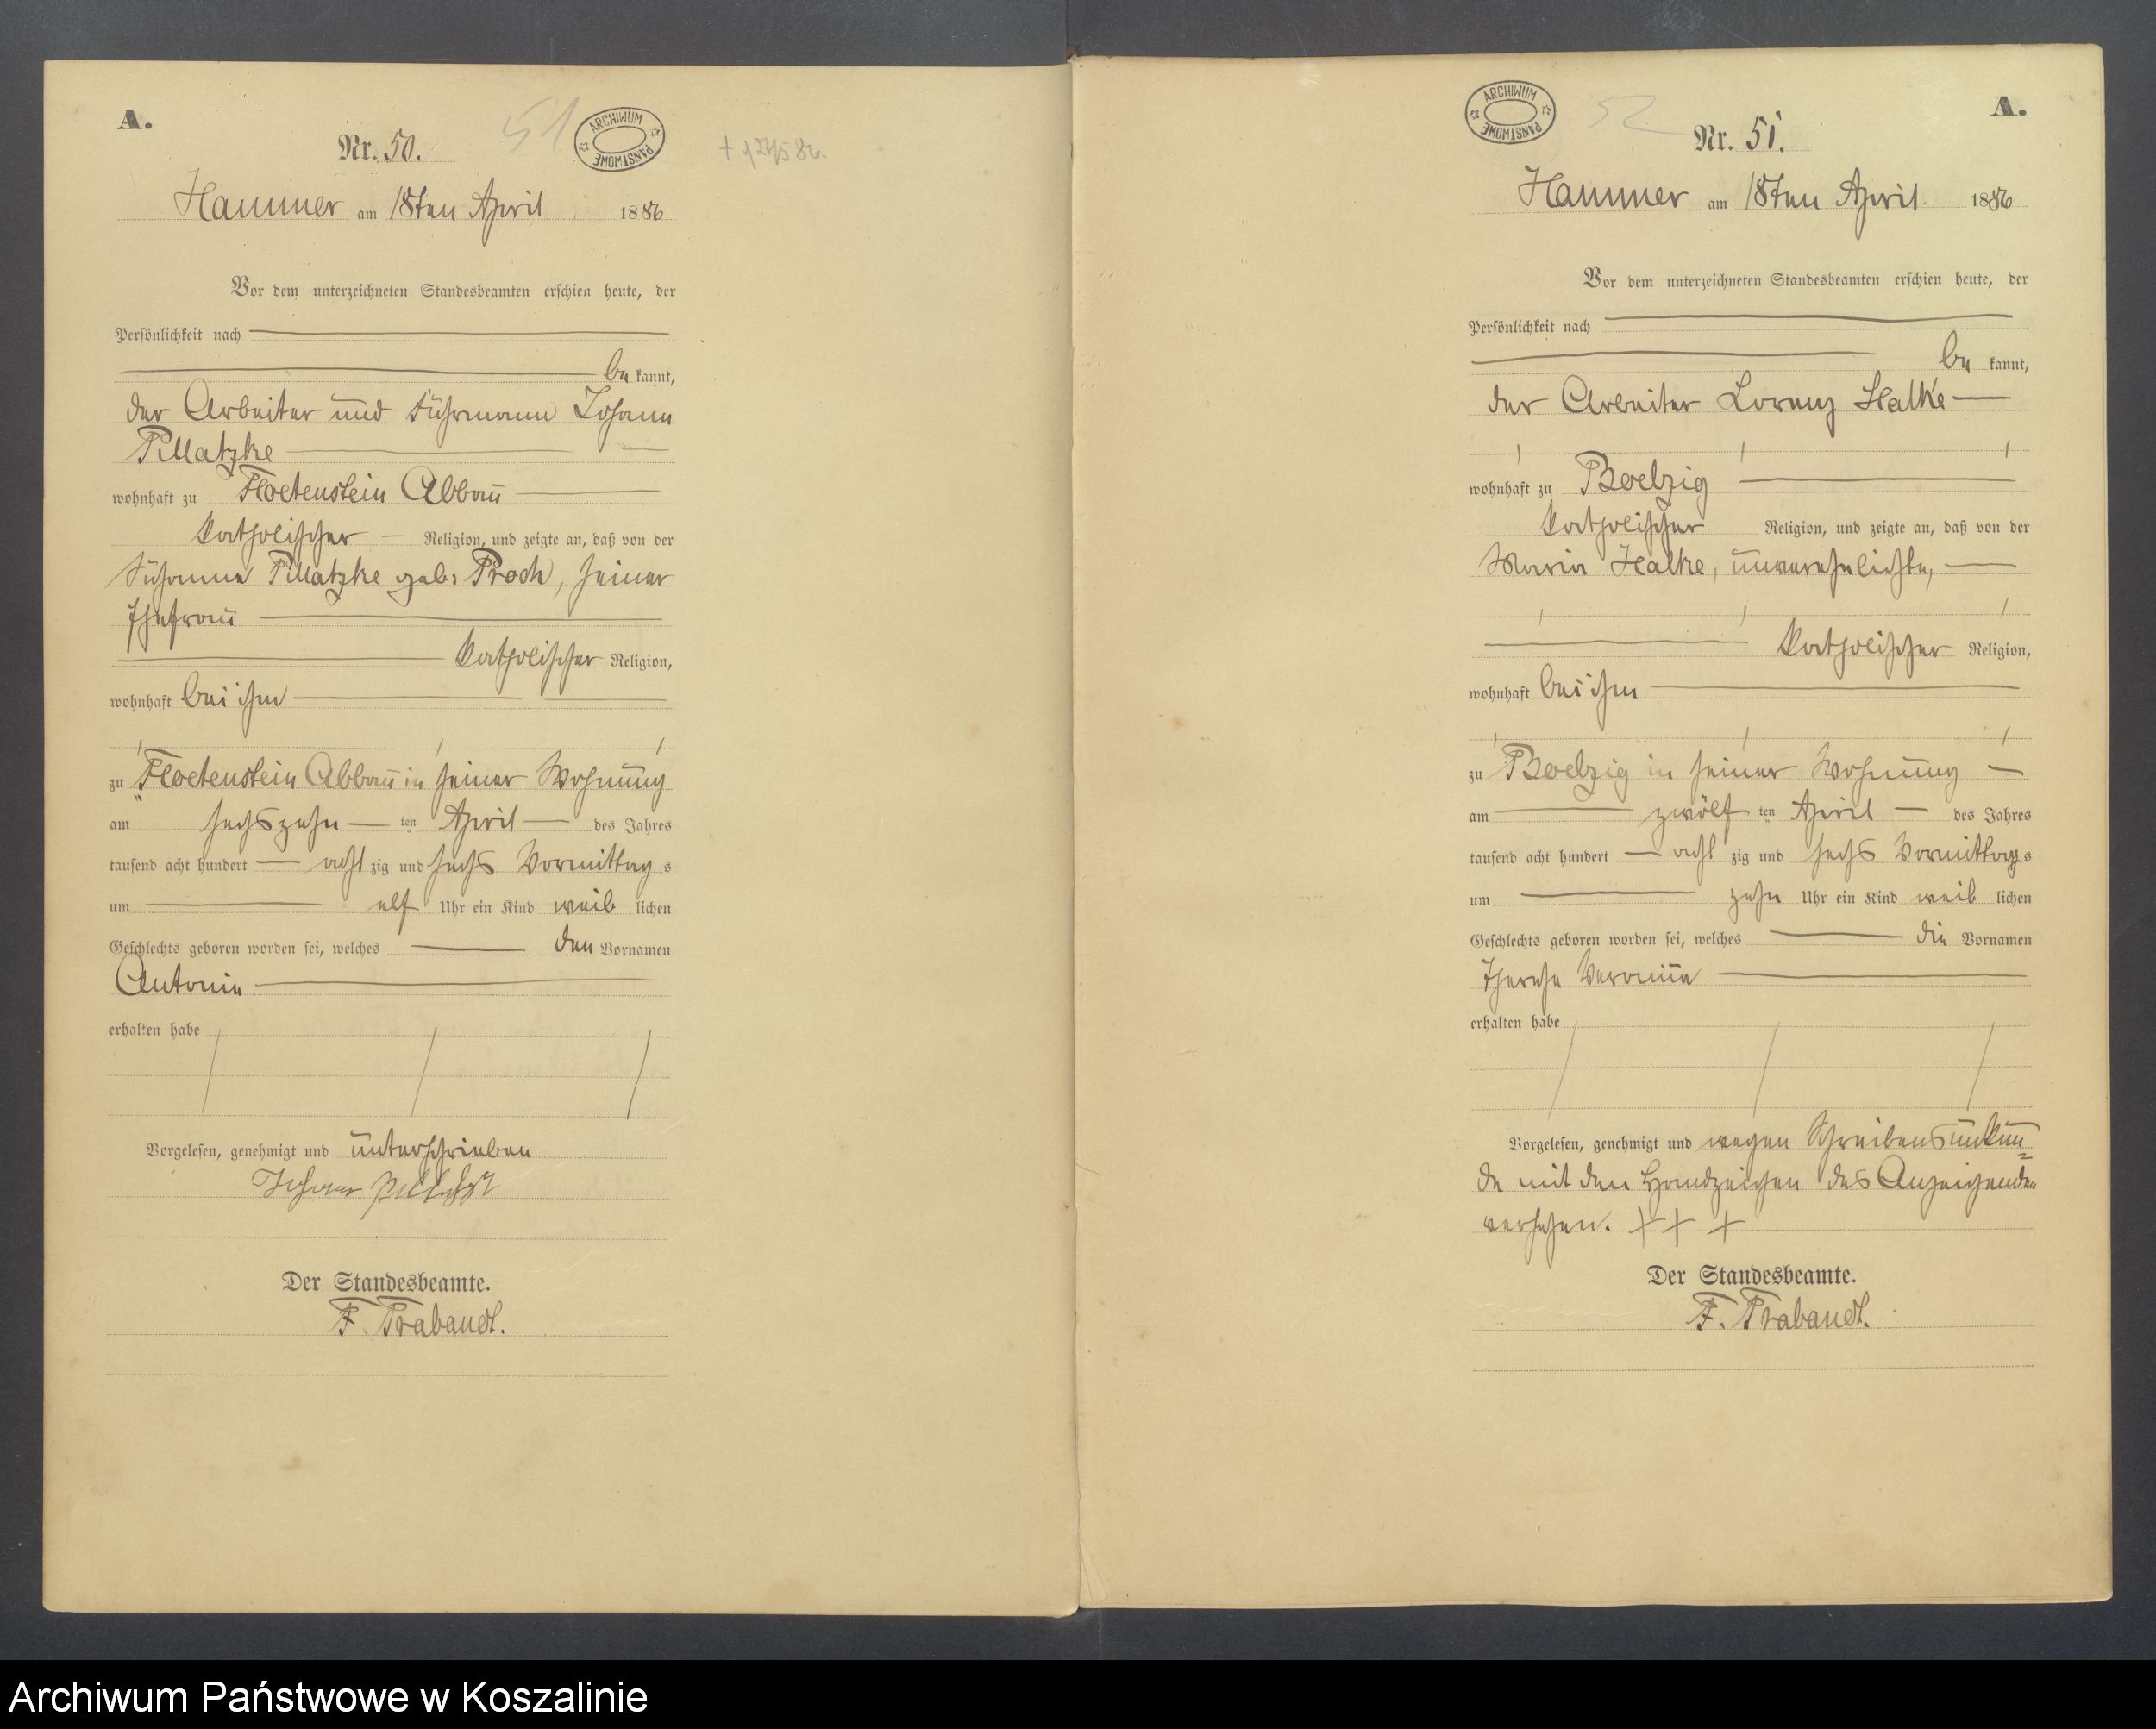 A.
Nr. 50.
51
ARCHIWUM PAŃSTWOWE
Hammer am 18ten April 1886
Vor dem unterzeichneten Standesbeamten erschien heute, der
Persönlichkeit nach
be kannt,
der Arbeiter und Fuhrmann Johann
Pillatzke
wohnhaft zu Floetenstein Abbau
katholischer Religion, und zeigte an, daß von der
Susanna Pillatzke geb: Proch, seiner
Ehefrau
katholischer Religion,
wohnhaft bei ihm
zu Floetenstein Abbau in seiner Wohnung
am sechszehn ten April des Jahres
tausend acht hundert acht zig und sechs Vormittag s
um elf Uhr ein Kind weib lichen
Geschlechts geboren worden sei, welches den Vornamen
Antonie
erhalten habe
Vorgelesen, genehmigt und unterschrieben
Johann
Der Standesbeamte.
F. Trabandt.
A.
ARCHIWUM PAŃSTWOWE
52
Nr. 51.
Hammer am 18ten April 1886
Vor dem unterzeichneten Standesbeamten erschien heute, der
Persönlichkeit nach
be kannt,
der Arbeiter Lorenz Halke
wohnhaft zu Boelzig
katholischer Religion, und zeigte an, daß von der
Maria Halke, unverehelichte,
katholischer Religion,
wohnhaft bei ihm
zu Boelzig in seiner Wohnung
am zwölf ten April des Jahres
tausend acht hundert acht zig und sechs Vormittags s
um zehn Uhr ein Kind weib lichen
Geschlechts geboren worden sei, welches die Vornamen
Therese
erhalten habe
Vorgelesen, genehmigt und wegen Schreibensunkun=
de mit den Handzeichen des Anzeigenden
versehen. + + +
Der Standesbeamte.
F. Trabandt.
Archiwum Państwowe w Koszalinie